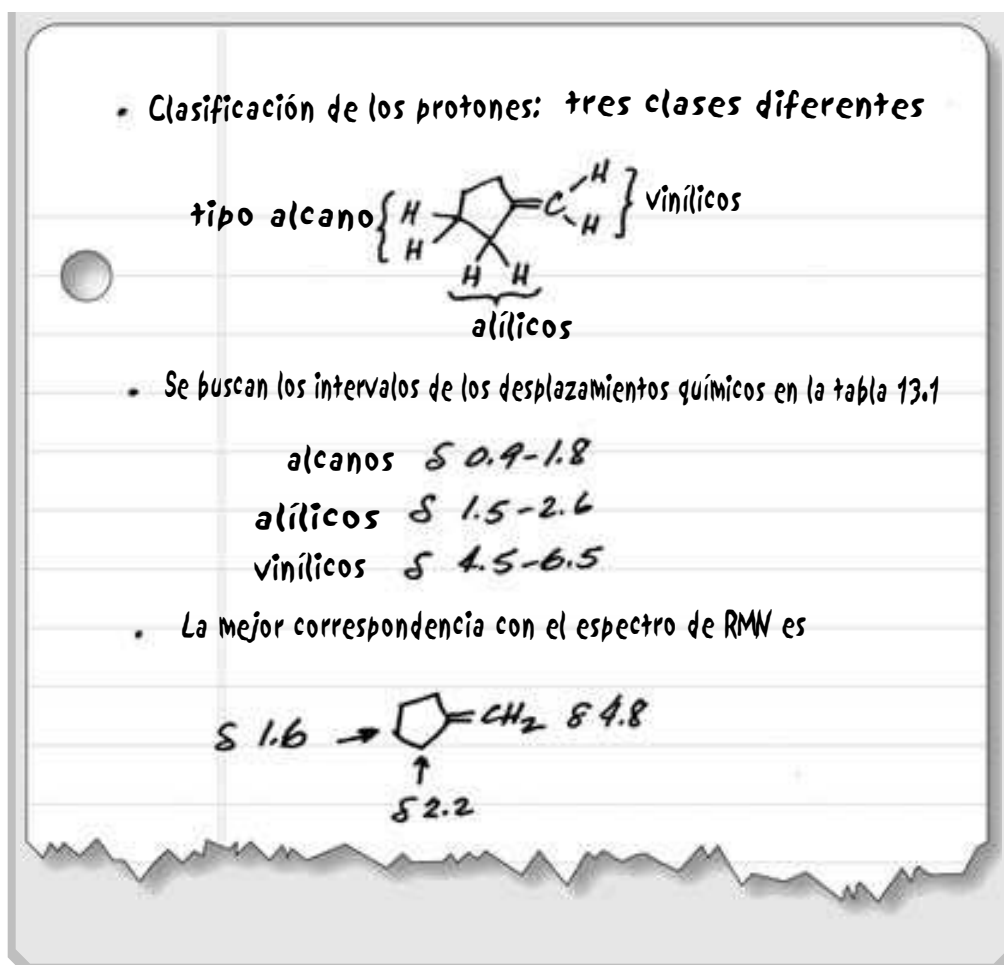 • Clasificación de los protones: tres clases diferentes
tipo alcano { H H C H H } vinílicos
H H
alílicos
• Se buscan los intervalos de los desplazamientos químicos en la tabla 13.1
alcanos δ 0.9-1.8
alílicos δ 1.5-2.6
vinílicos δ 4.5-6.5
• La mejor correspondencia con el espectro de RMN es
δ 1.6 → =CH₂ δ 4.8
↑
δ 2.2